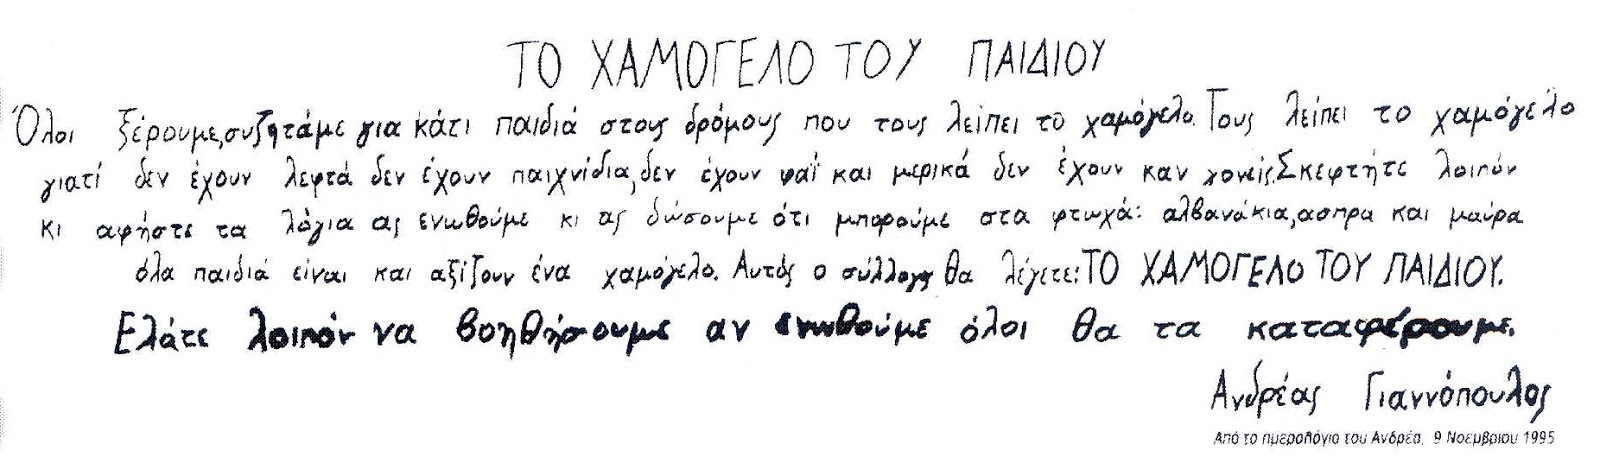 ΤΟ ΧΑΜΟΓΕΛΟ ΤΟΥ ΠΑΙΔΙΟΥ
Όλοι ξέρουμε, συζητάμε για κάτι παιδιά στους δρόμους που τους λείπει το χαμόγελο. Τους λείπει το χαμόγελο
γιατί δεν έχουν λεφτά δεν έχουν παιχνίδια, δεν έχουν φαΐ και μερικά δεν έχουν καν γονείς. Σκεφτήτε λοιπόν
κι αφήστε τα λόγια ας ενωθούμε κι ας δώσουμε ότι μπορούμε στα φτωχά: αλβανάκια, ασπρα και μαύρα
όλα παιδιά είναι και αξίζουν ένα χαμόγελο. Αυτός ο σύλλογς θα λέγετε: ΤΟ ΧΑΜΟΓΕΛΟ ΤΟΥ ΠΑΙΔΙΟΥ.
Ελάτε λοιπόν να βοηθήσουμε αν ενωθούμε όλοι θα τα καταφέρουμε.
Ανδρέας Γιαννόπουλος
Από το ημερολόγιο του Ανδρέα, 9 Νοεμβρίου 1995